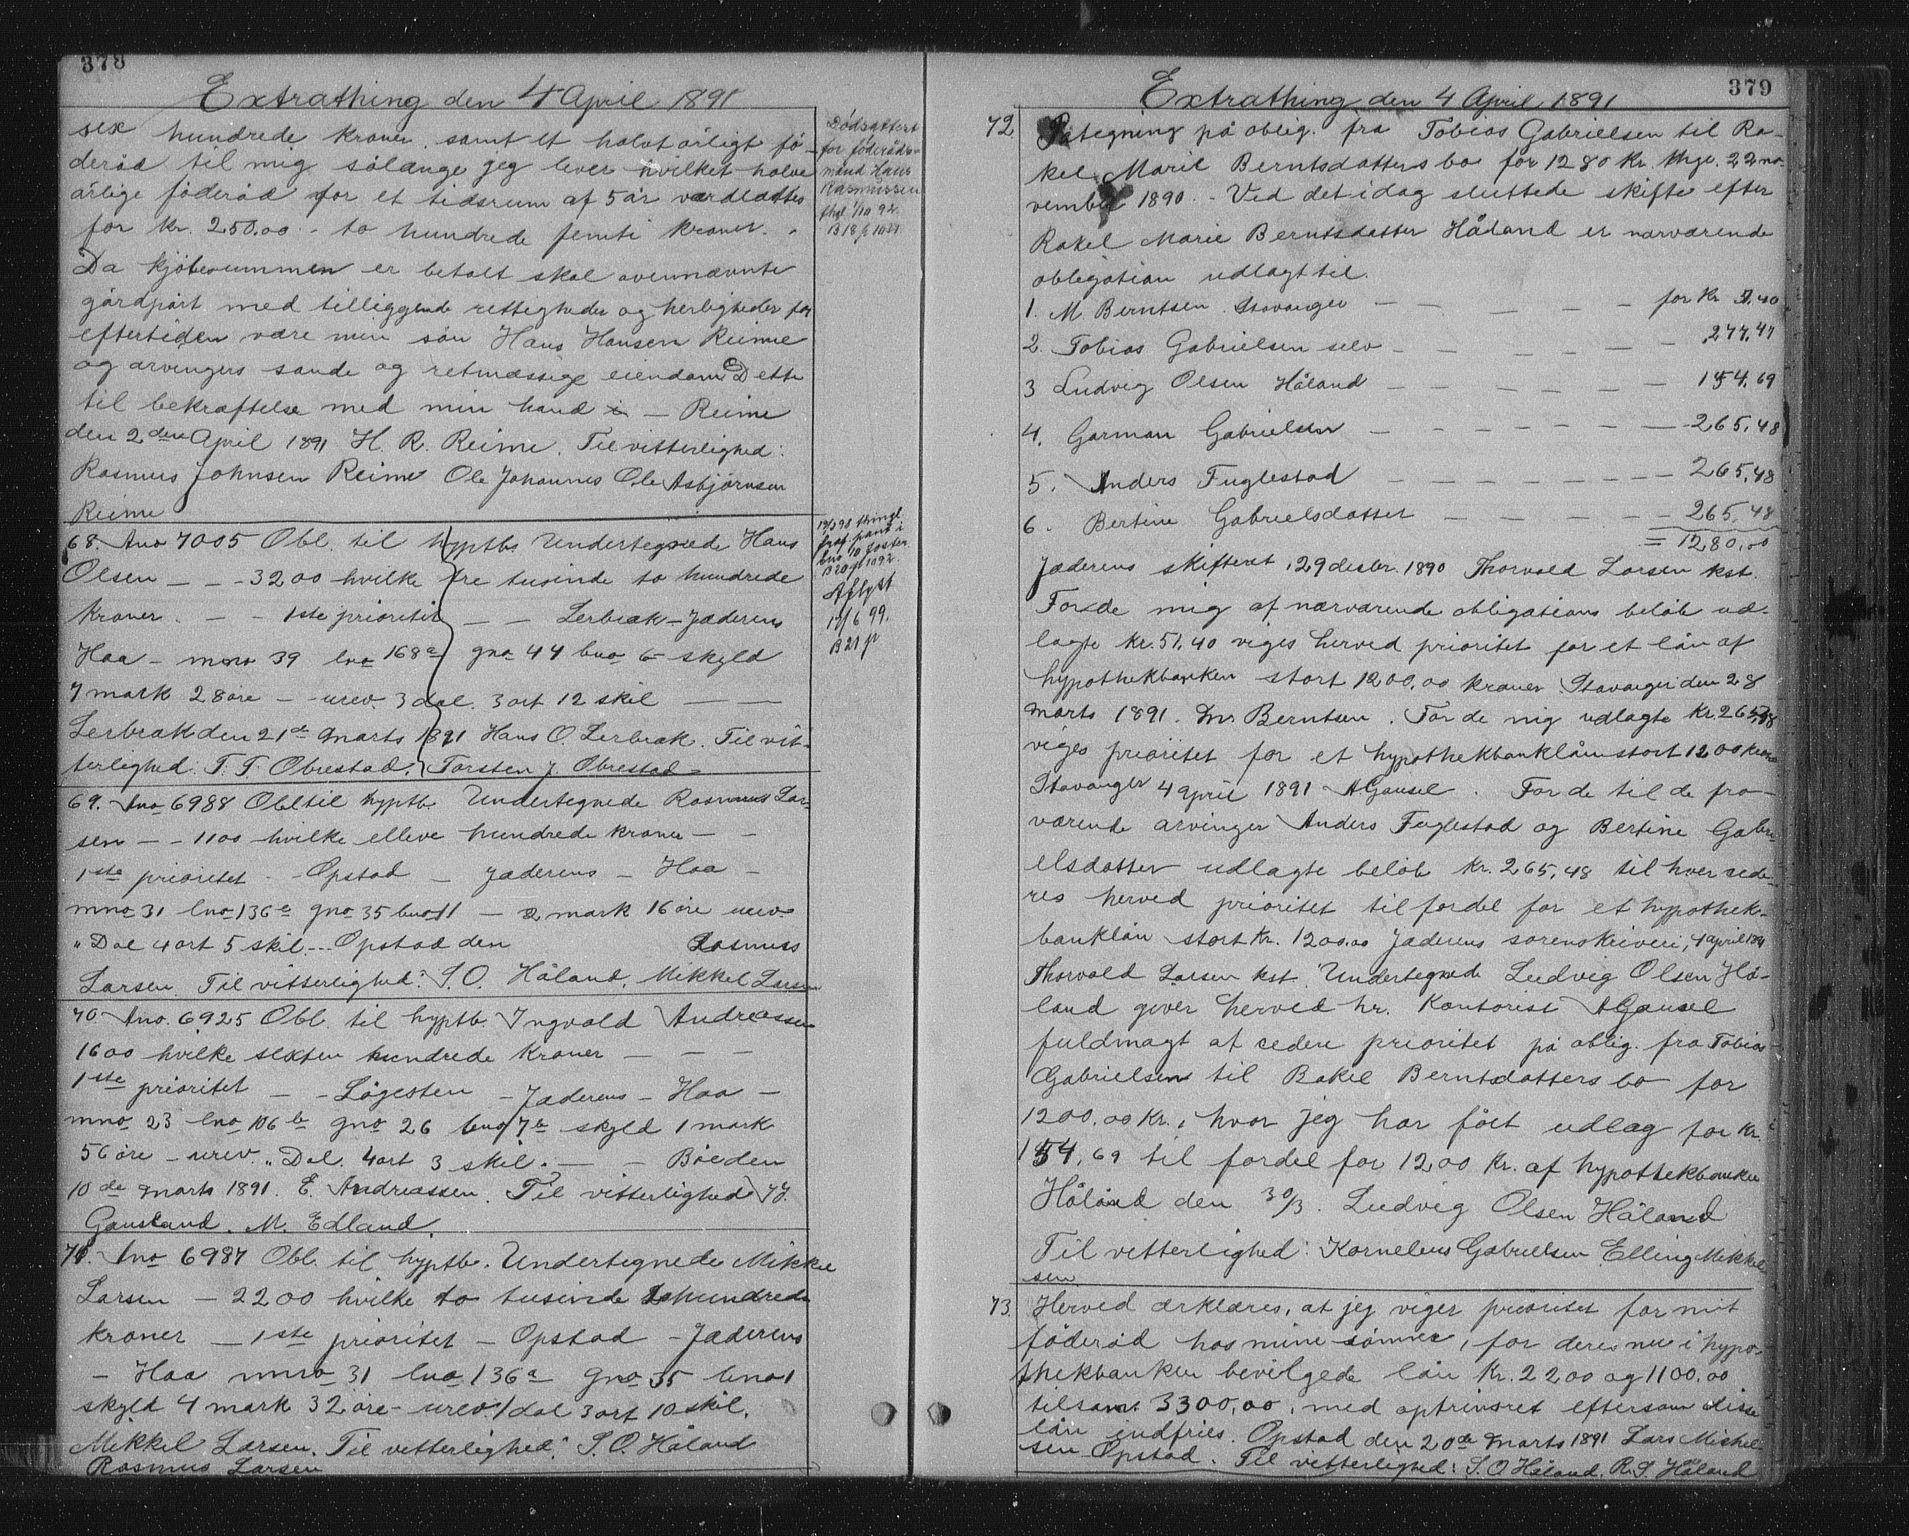 378
Extrathing den 4 April 1891
sex hundrede kroner samt et halvt årligt fö-
deråd til mig sålænge jeg lever hvilket halve
årlige föderåd for et tidsrum af 5 år værdsættes
for kr. 250.00 - to hundrede femti kroner. -
Da kjöbesummen er betalt skal ovennævnte
gårdpart med tilliggende rettigheder og herligheder for
eftertiden være min sön Hans Hansen Reime
og arvingers sande og retmæssige eiendom Dette
til bekræftelse med min hand - Reime
den 2den April 1891 H. R. Reime. Til vitterlighed:
Rasmus Johnsen Reime Ole Johannes Ole Asbjörnsen
Reime
Dödsattest
for föderåds-
mand Hans
Rasmussen
thgl 1/10 92
B 18 p 102
68. Ano 7005 Obl. til hyptb. Undertegnede Hans
Olsen - - - 3200 hvilke tre tusinde to hundrede
kroner. - - 1ste prioritet - - Lerbræk - Jæderens
Haa - mno 39 lno 168a gno 44 bno 6 skyld
7 mark 28 öre - - urev. 3 dal. 3 ort 12 skil - -
Lerbræk den 21de marts 1891 Hans O. Lerbræk. Til vit-
terlighed: T. T. Obrestad. Torsten J. Obrestad -
thingl.
fraf. pant i
bno 10
B 20 p 1092.
Aflyst
17/6 99.
B 21 p
69. Ano 6988 Obl til hyptb. Undertegnede Rasmus Lar-
sen - - 1100 hvilke elleve hundrede kroner - -
1ste prioritet - Opstad - Jæderens - Haa -
mno 31 lno 136c gno 35 bno 11 - 2 mark 16 öre urev
" Dal 4 ort 5 skil. - - Opstad den Rasmus
Larsen. Til vitterlighed: S. O. Håland, Mikkel Larsen
70. Ano. 6925 Obl. til hyptb. Ingvald Andreassen
1600 hvilke sexten hundrede kroner - - -
1ste prioritet - - Lögesten - Jæderens - Haa -
mno 23 lno 106b gno 26 bno 7b skyld 1 mark
56 öre - urev. " Dal. 4 ort 3 skil. - - Böe den
10de marts 1891. E. Andreassen. Til vitterlighed J.
Gausland. M. Edland.
71. Ano 6987 Obl. til hyptb. Undertegnede Mikkel
Larsen - 2200 hvilke to tusinde to hundrede
kroner - 1ste prioritet - Opstad - Jæderens
- Haa mno 31 lno 136a gno 35 bno 1
skyld 4 mark 32 öre - urev. 1 dal 3 ort 10 skil.
Mikkel Larsen. Til vitterlighed: S. O. Håland
Rasmus Larsen
379
Extrathing den 4 April 1891
72 Påtegning på oblig. fra Tobias Gabrielsen til Ra-
kel Marie Berntsdatters bo for 1280 kr. thgl. 22 no-
vember 1890. - Ved det idag sluttede skifte efter
Rakel Marie Berntsdatter Håland er nærværende
obligation udlagt til.
1. M. Berntsen Stavanger - - - - - for kr 51,40
2. Tobias Gabrielsen selv - - - - - - 277,47
3 Ludvig Olsen Håland - - - - - - 154,69
4. Garman Gabrielsen - - - - - - - 265,48
5. Anders Fuglestad - - - - - - - 265,48
6. Bertine Gabrielsdatter - - - - - 265,48
= 1280,00
Jæderens skifteret, 29 desbr. 1890 Thorvald Larsen kst.
For de mig af nærværende obligations belöb ud-
lagte kr. 51,40 viges herved prioritet for et lån af
hypothekbanken stort 1200,00 kroner Stavanger den 28
marts 1891. M. Berntsen. For de mig udlagte kr 265,48
viges prioritet for et hypothekbanklån stort 1200 kroner
Stavanger 4 april 1891 A Gausel. For de til de fra-
værende arvinger Anders Fuglestad og Bertine Gabri-
elsdatter udlagte belöb kr. 265,48 til hver cede-
res herved prioritet til fordel for et hypothek-
banklån stort kr. 1200.00 Jæderens sorenskriveri, 4 april 1891
Thorvald Larsen kst. Undertegnede Ludvig Olsen Hå-
land giver herved hr. Kontorist A Gausel
fuldmagt at cedere prioritet på oblig. fra Tobias
Gabrielsen til Rakel Berntsdatters bo for
1200,00 kr., hvor jeg har fået udlæg for kr.
154,69 til fordel for 1200 kr. af hypothekbanken
Håland den 30/3. Ludvig Olsen Håland
Til vitterlighed: Kornelius Gabrielsen Elling Mikkel-
sen
73 Herved erklæres, at jeg viger prioritet for mit
föderåd hos mine sönner, for deres nu i hypo-
thekbanken bevilgede lån kr. 2200 og 1100.00
tilsam. 3300,00, med optrinsret eftersom disse
lån indfries. Opstad den 20de marts 1891 Lars Mikkel-
sen Opstad. Til vitterlighed: S. O Håland. R. S. Håland